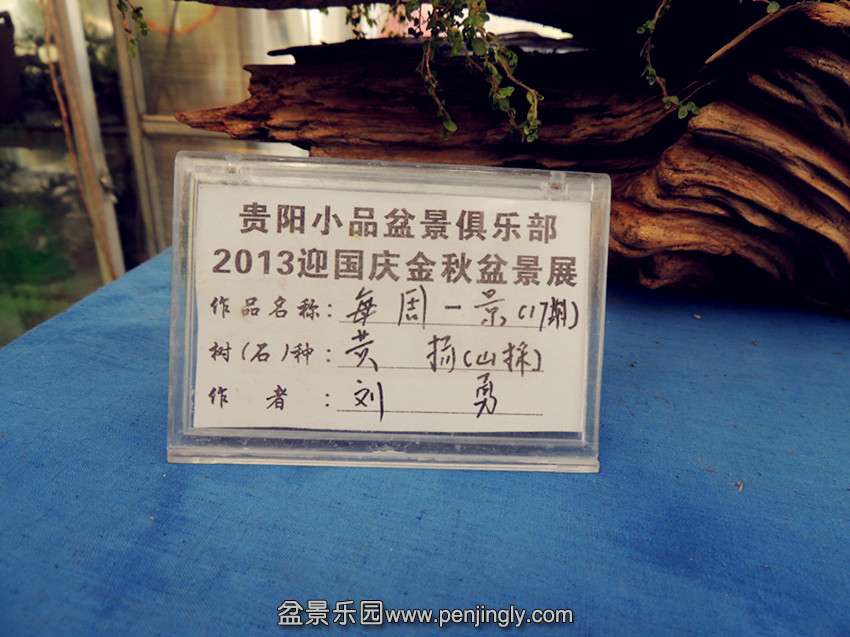 贵阳小品盆景俱乐部
2013迎国庆金秋盆景展
作品名称：每周一景(17期)
树(石)种：黄杨(山採)
作者：刘勇
盆景乐园www.penjingly.com